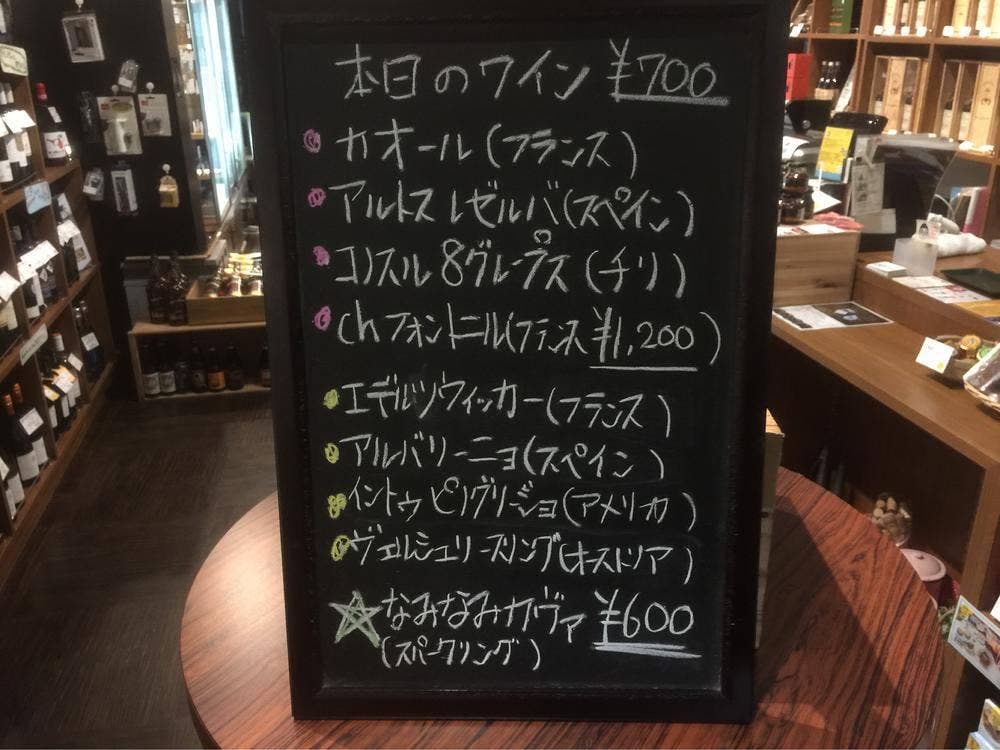 本日のワイン ¥700
カオール(フランス)
アルトス レゼルバ(スペイン)
コノスル 8グレープス(チリ)
Chフォントニル(フランス ¥1,200)
エデルツヴィッカー(フランス)
アルバリーニョ(スペイン)
イントゥ ピノグリージョ(アメリカ)
ヴェルシュリースリング(オーストリア)
☆なみなみカヴァ ¥600
(スパークリング)